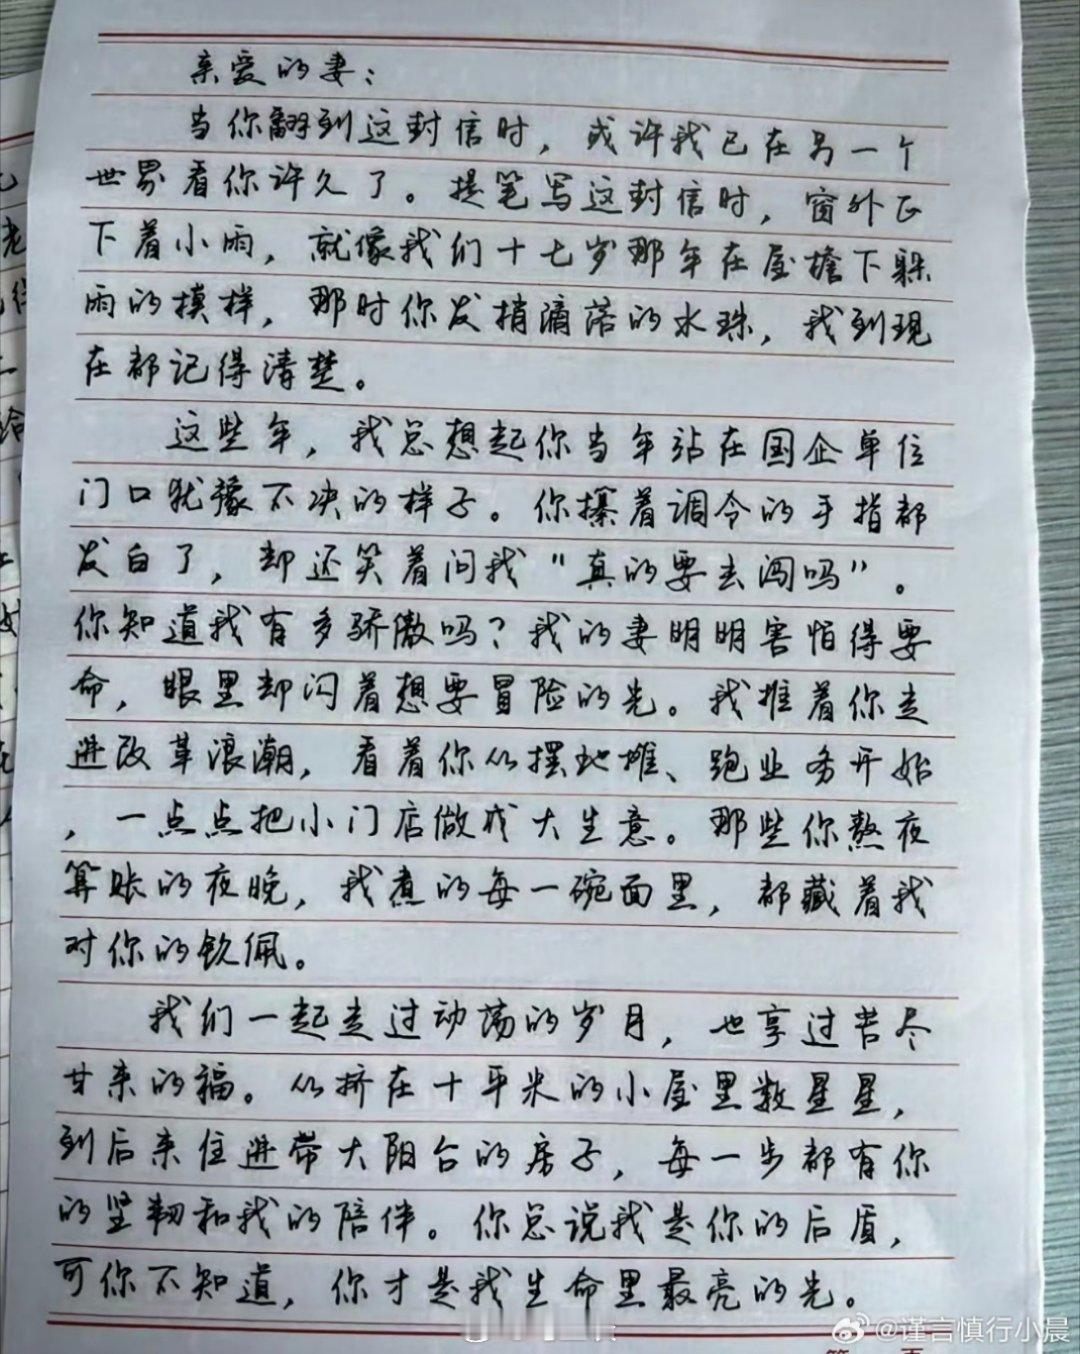 亲爱的妻：
当你翻到这封信时，或许我已在另一个
世界看你许久了。提笔写这封信时，窗外正
下着小雨，就像我们十七岁那年在屋檐下躲
雨的模样，那时你发捎滴落的水珠，我到现
在都记得清楚。
这些年，我总想起你当年站在国企单位
门口犹豫不决的样子。你攥着调令的手指都
发白了，却还笑着问我“真的要去闯吗”。
你知道我有多骄傲吗？我的妻明明害怕得要
命，眼里却闪着想要冒险的光。我推着你走
进改革浪潮，看着你从摆地摊、跑业务开始
，一点点把小门店做成大生意。那些你熬夜
算账的夜晚，我煮的每一碗面里，都藏着我
对你的钦佩。
我们一起走过动荡的岁月，也享过苦尽
甘来的福。从挤在十平米的小屋里数星星，
到后来住进带大阳台的房子，每一步都有你
的坚韧和我的陪伴。你总说我是你的后盾，
可你不知道，你才是我生命里最亮的光。
@谨言慎行小晨